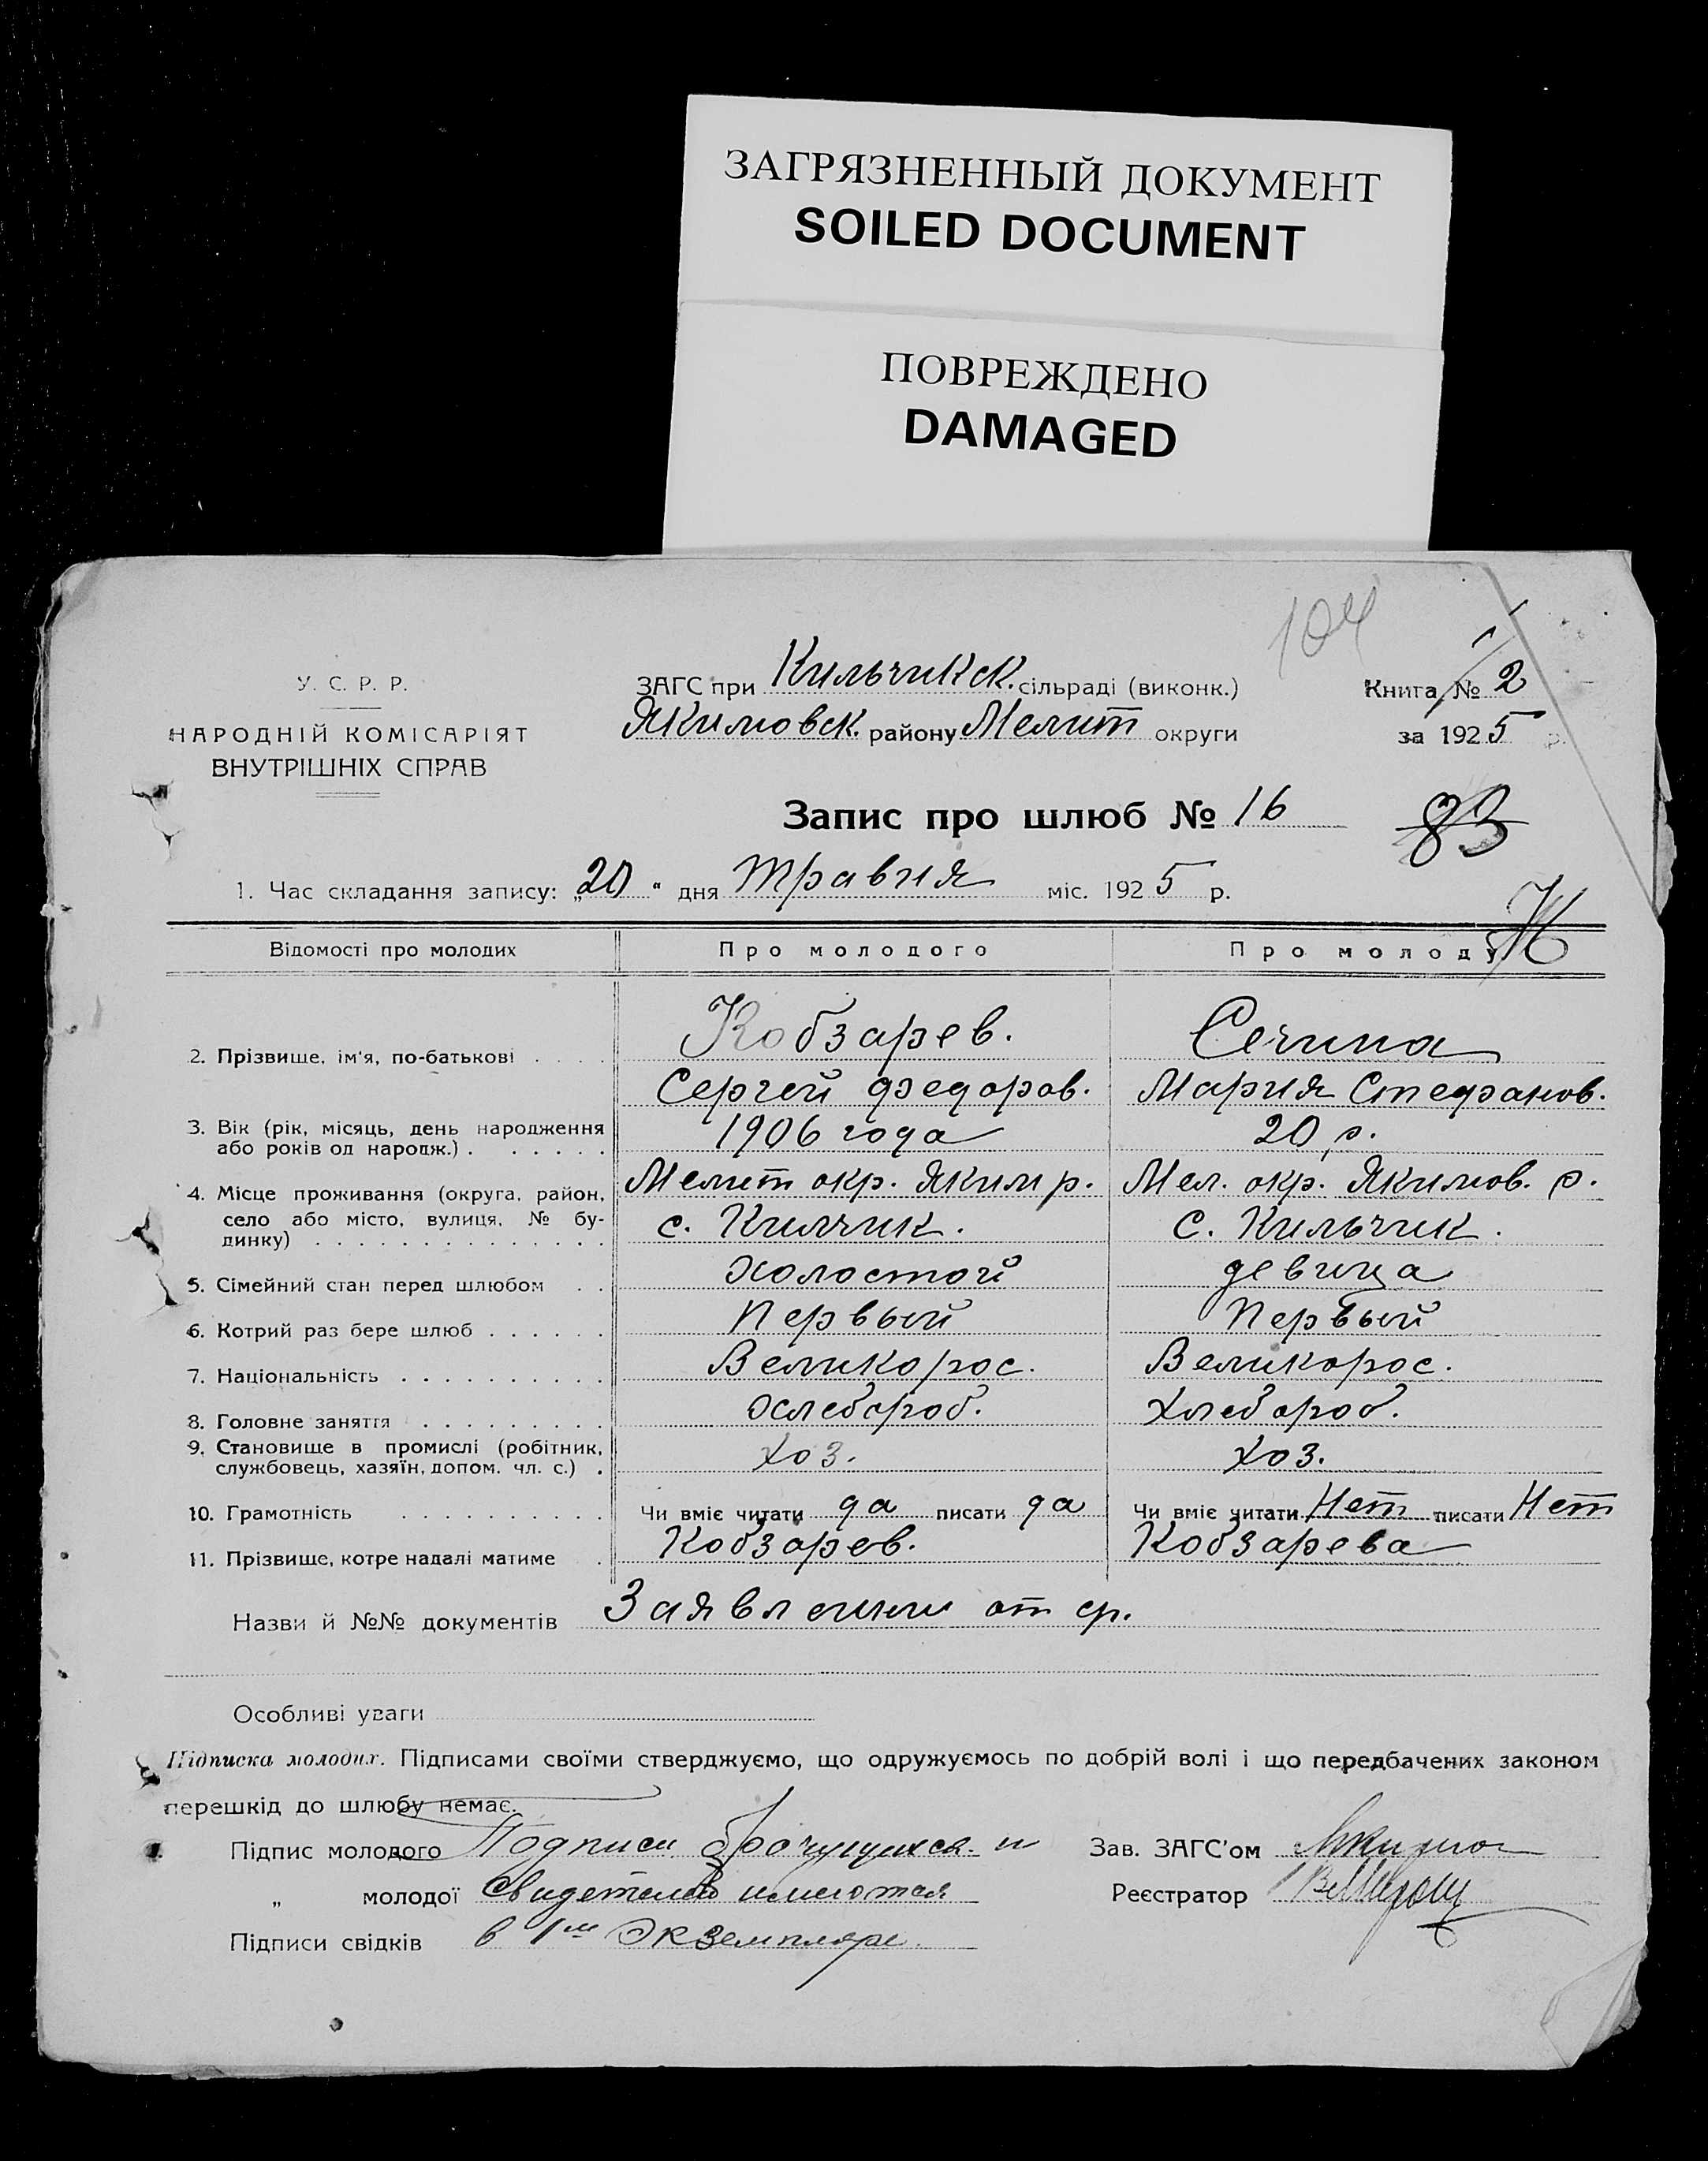 ЗАГРЯЗНЕННЫЙ ДОКУМЕНТ
SOILED DOCUMENT
ПОВРЕЖДЕНО
DAMAGED
104
У. С. Р. Р.
НАРОДНІЙ КОМІСАРІЯТ
ВНУТРІШНІХ СПРАВ
ЗАГС при Кильчикск. сільраді (виконк.)
Якимовск. району Мелит округи
Книга № 2
за 1925 р.
Запис про шлюб № 16
83
1. Час складання запису: „20" дня травня міс. 1925 р.
Відомості про молодих Про молодого Про молоду
2. Прізвище, ім'я, по-батькові . . . . Кобзарев. Сечина
Сергей Федоров. Мария Стефанов.
3. Вік (рік, місяць, день народження 1906 года 20 р.
або років од народж.) . . . . . .
4. Місце проживання (округа, район, Мелит окр. Яким р. Мел. окр. Якимов. р.
село або місто, вулиця, № бу- с. Килчик. с. Кильчик.
динку) . . . . . . . . . . . . . .
5. Сімейний стан перед шлюбом . . холостой девица
6. Котрий раз бере шлюб . . . . . . первый первый
7. Національність . . . . . . . . . . Великорос. Великорос.
8. Головне заняття . . . . . . . . . хлебороб. хлебороб.
9. Становище в промислі (робітник,
службовець, хазяїн, допом. чл. с.) . хоз. хоз.
10. Грамотність . . . . . . . . . . Чи вміє читати да писати да Чи вміє читати Нет писати Нет
11. Прізвище, котре надалі матиме . Кобзарев. Кобзарева
Назви й №№ документів Заявлении от ср.
Особливі уваги
Підписка молодих. Підписами своїми стверджуємо, що одружуємось по добрій волі і що передбачених законом
перешкід до шлюбу немає.
Підпис молодого Подписи брачущихся и Зав. ЗАГС'ом
„ молодої свидетелей имеются Реєстратор
Підписи свідків в 1м экземпляре.